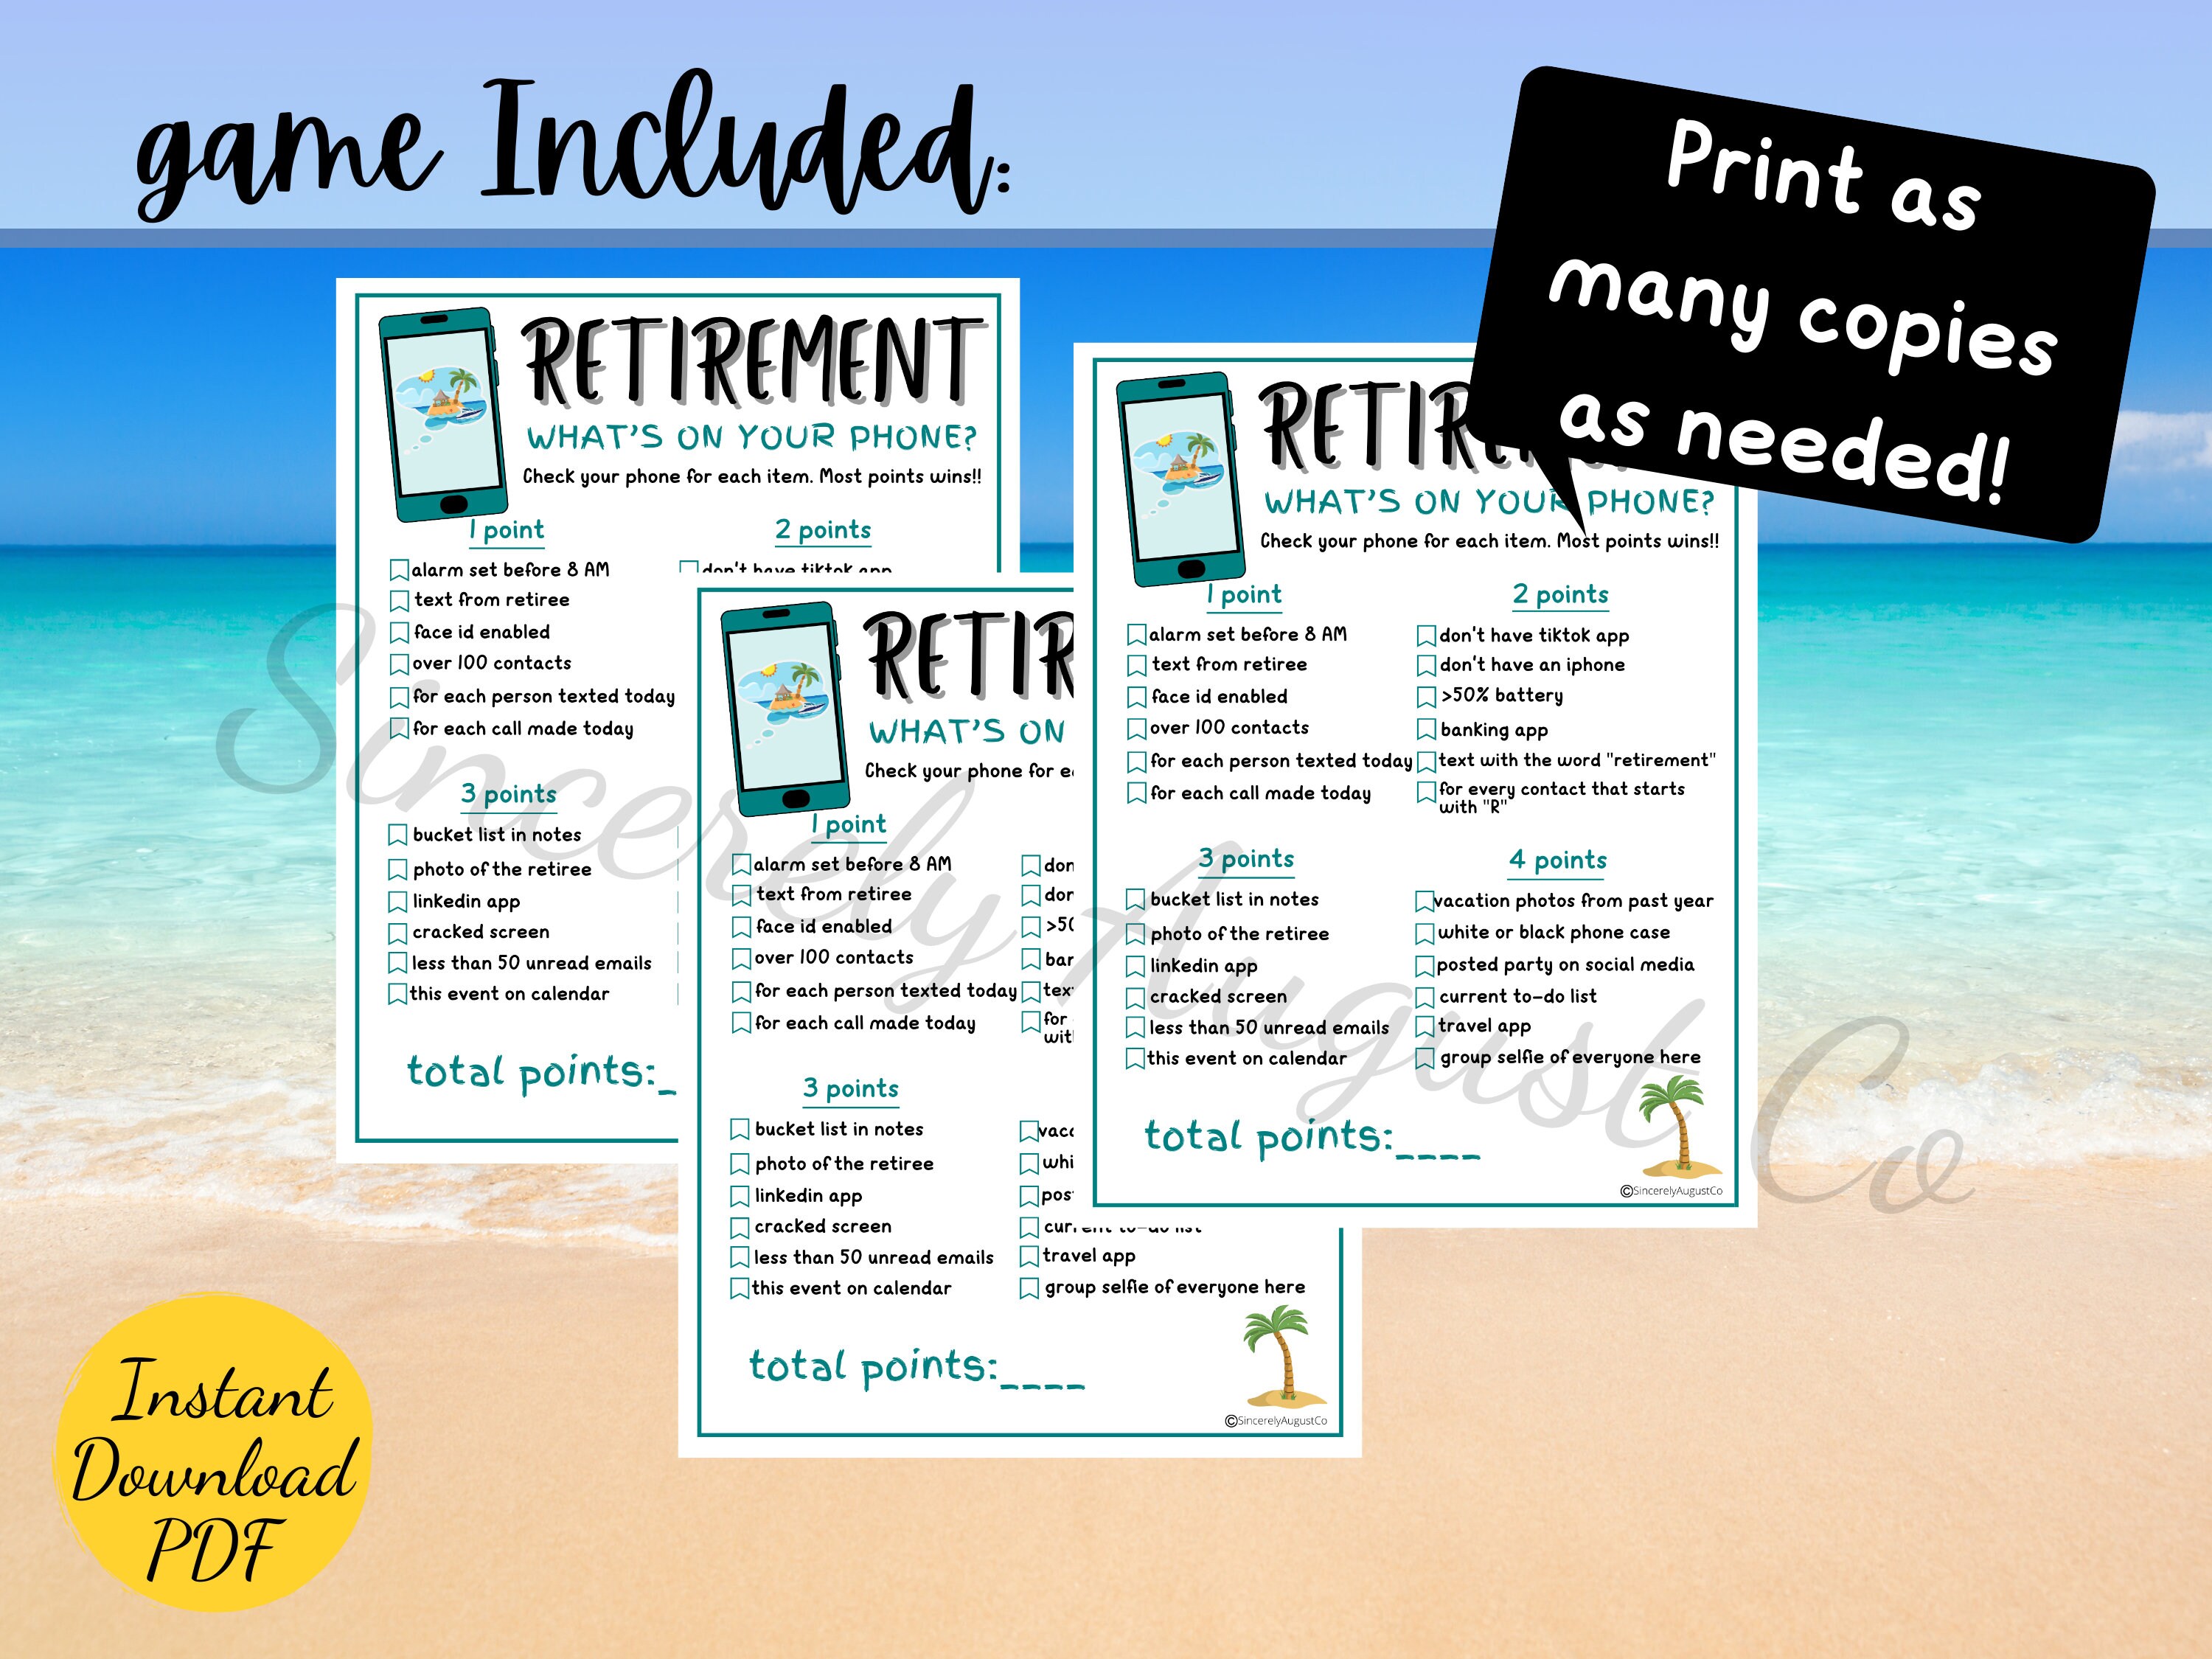 game Included:
Print as
many copies
as needed!
RETIREMENT
WHAT'S ON YOUR PHONE?
Check your phone for each item. Most points wins!!
1 point
alarm set before 8 AM
text from retiree
face id enabled
over 100 contacts
for each person texted today
for each call made today
2 points
don't have tiktok app
3 points
bucket list in notes
photo of the retiree
linkedin app
cracked screen
less than 50 unread emails
this event on calendar
total points:_
RETIR
WHAT'S ON
Check your phone for e
1 point
alarm set before 8 AM
text from retiree
face id enabled
over 100 contacts
for each person texted today
for each call made today
don
don
>50
ban
tex
for
with
3 points
bucket list in notes
photo of the retiree
linkedin app
cracked screen
less than 50 unread emails
this event on calendar
vaca
whi
pos
current to-do list
travel app
group selfie of everyone here
total points:____
©SincerelyAugustCo
RETIREMENT
WHAT'S ON YOUR PHONE?
Check your phone for each item. Most points wins!!
1 point
alarm set before 8 AM
text from retiree
face id enabled
over 100 contacts
for each person texted today
for each call made today
2 points
don't have tiktok app
don't have an iphone
>50% battery
banking app
text with the word "retirement"
for every contact that starts
with "R"
3 points
bucket list in notes
photo of the retiree
linkedin app
cracked screen
less than 50 unread emails
this event on calendar
4 points
vacation photos from past year
white or black phone case
posted party on social media
current to-do list
travel app
group selfie of everyone here
total points:____
©SincerelyAugustCo
Sincerely August Co
Instant
Download
PDF